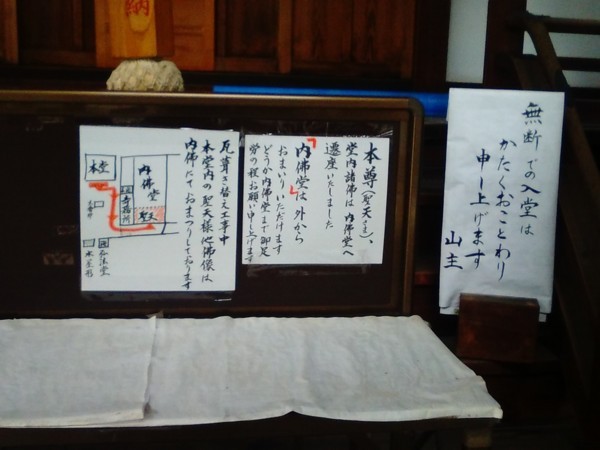 納
無断での入堂は
かたくおことわり
申し上げます
山主
本尊(聖天さま)、
堂内諸佛は内佛堂へ
遷座いたしました
「内佛堂」は外から
おまいりいただけます
どうか内佛堂まで御足
労の程お願い申し上げます
瓦葺き替え工事中
本堂内の聖天様他佛像は
内佛にておまつりしております
本堂
内佛堂
寺務所
聖天
弘法堂
水屋形